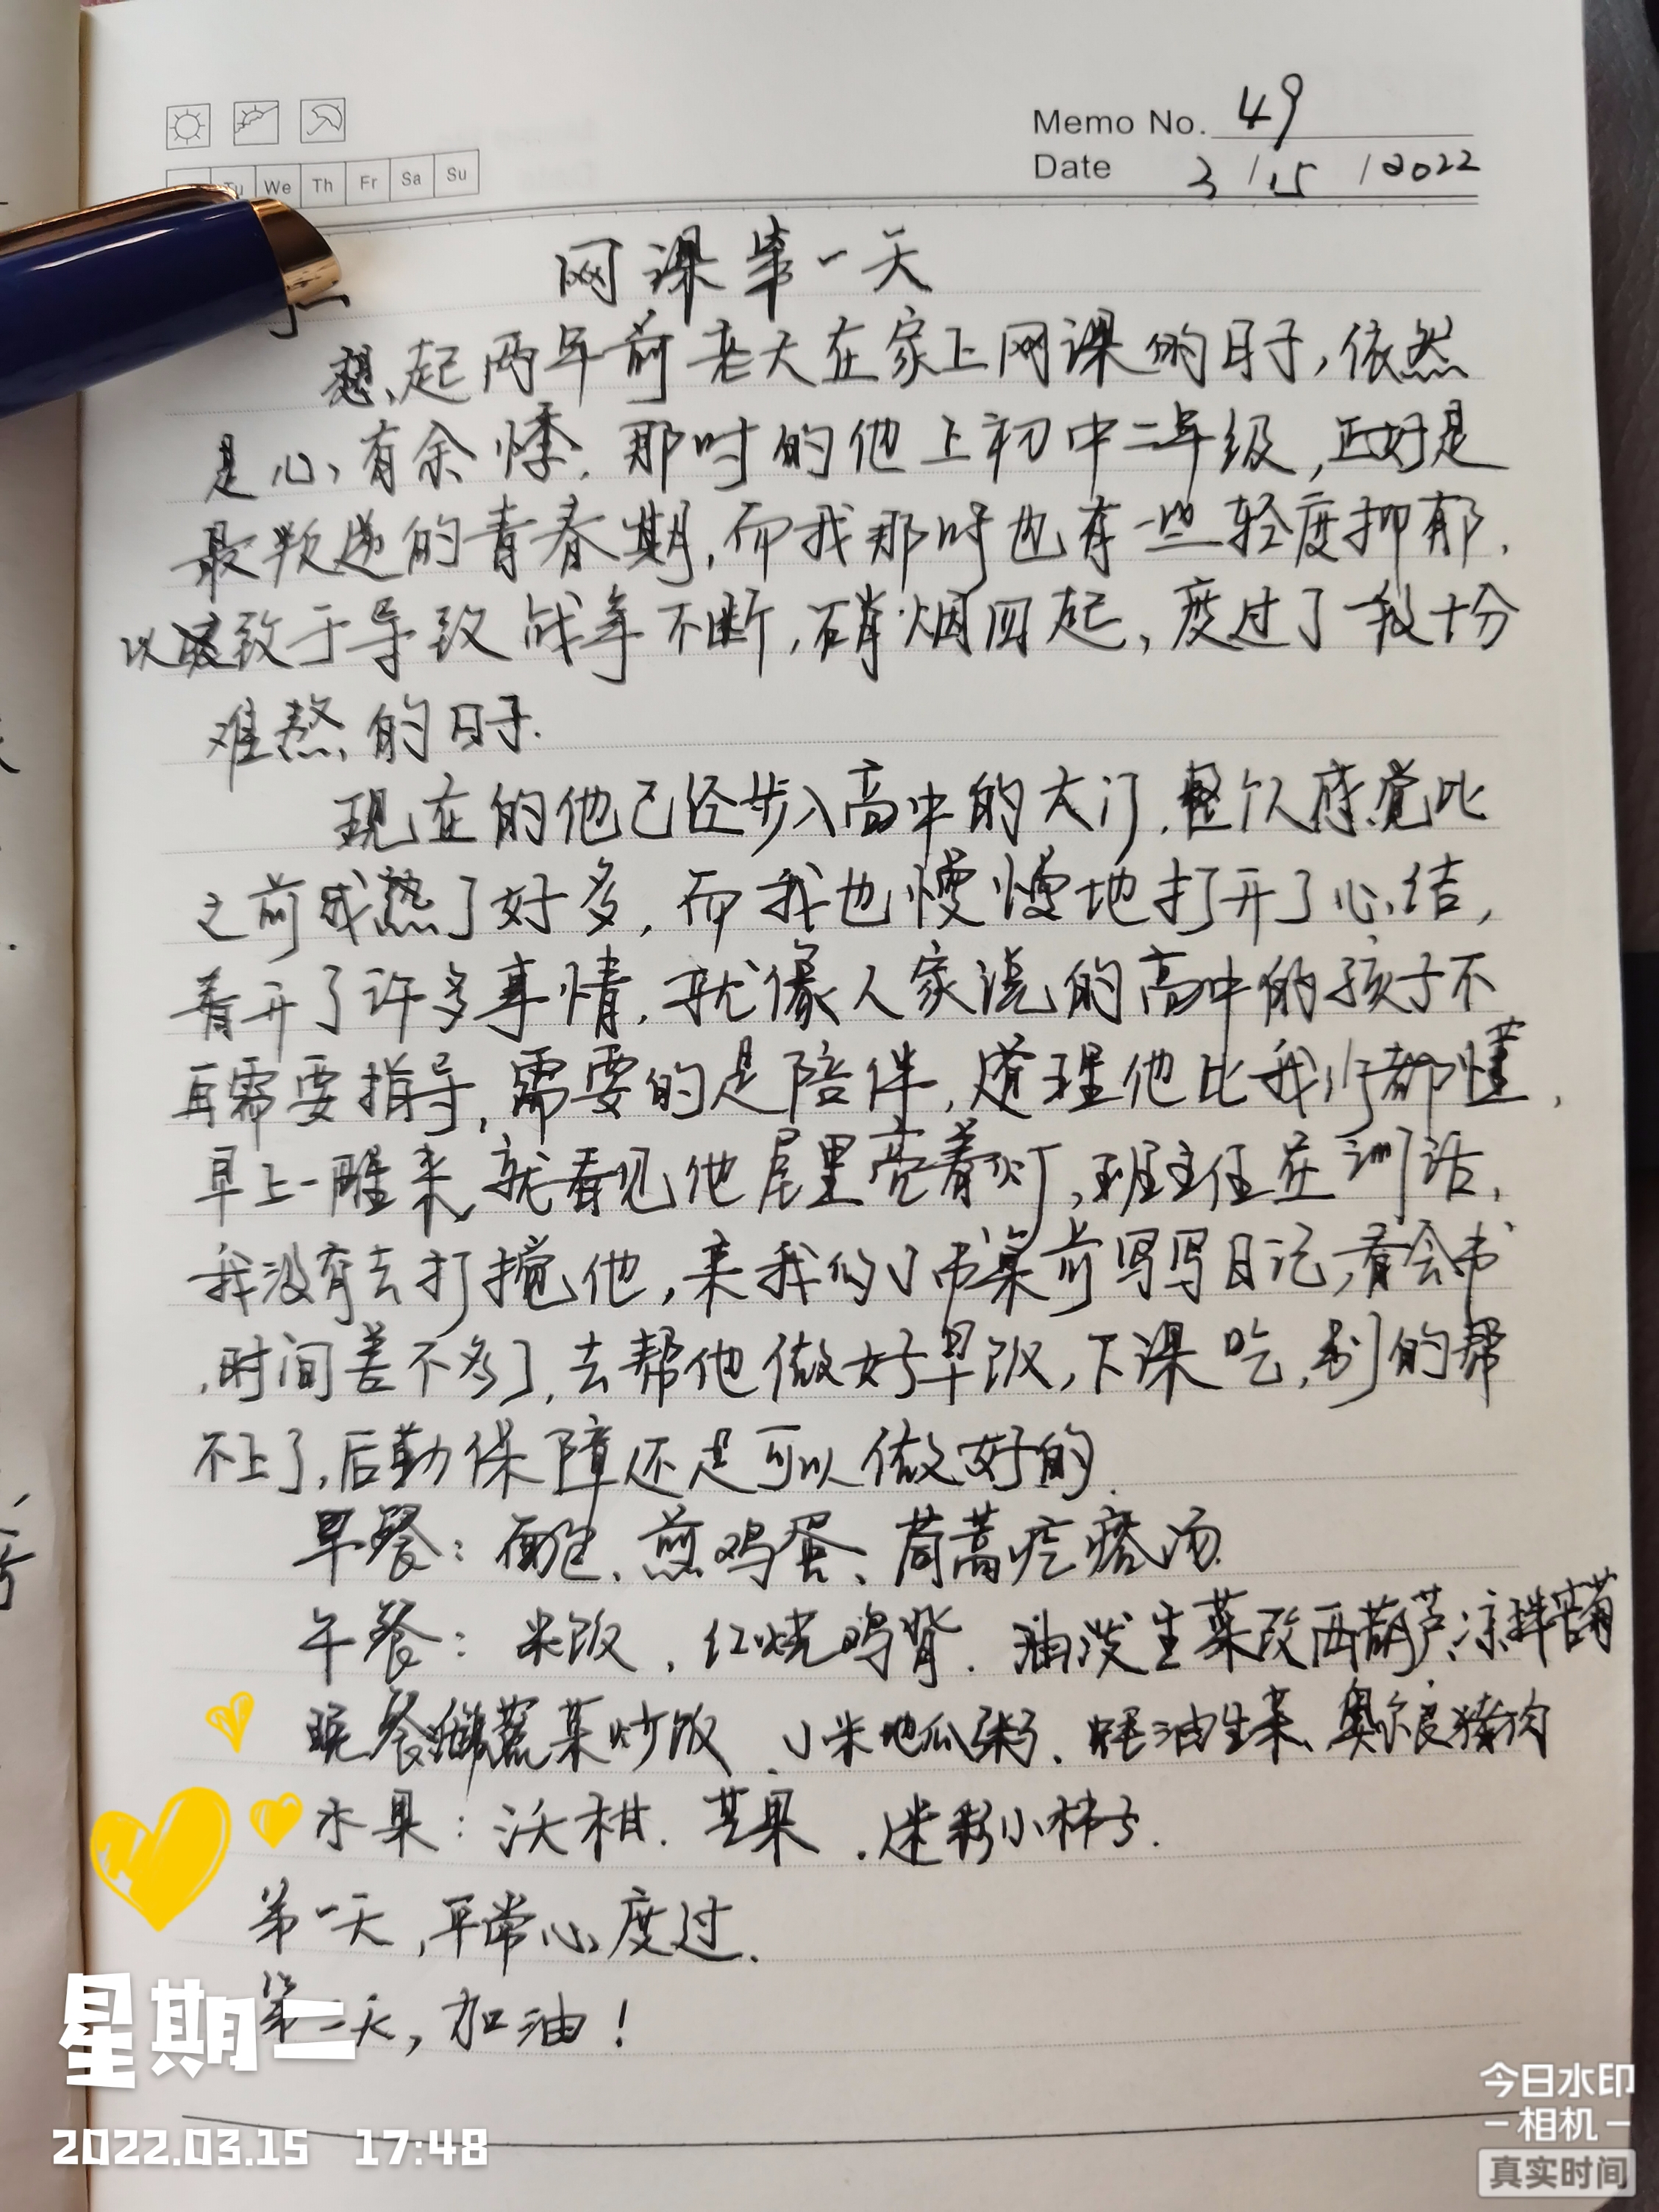 Memo No. 49
Tu We Th Fr Sa Su
Date 3/15/2022
网课第一天
想起两年前老大在家上网课的日子,依然
是心有余悸.那时的他上初中二年级,正好是
最叛逆的青春期,而我那时也有一些轻度抑郁.
以致于导致战争不断,硝烟四起,度过了一段十分
难熬的日子.
现在的他已经步入高中的大门.整个人感觉比
之前成熟了好多,而我也慢慢地打开了心结,
看开了许多事情.就像人家说的高中的孩子不
再需要指导,需要的是陪伴,道理他比我们都懂,
早上一醒来,就看见他屋里亮着灯,班主任在训话,
我没有去打搅他,来我的小书桌前写写日记,看会书
,时间差不多了,去帮他做好早饭,下课吃,别的帮
不上了,后勤保障还是可以做好的.
早餐:面包、煎鸡蛋、茼蒿疙瘩汤.
午餐:米饭、红烧鸡背、油泼生菜改西葫芦、凉拌苦菊
晚餐 蔬菜炒饭、小米地瓜粥、蚝油生菜、奥尔良猪肉
水果:沃柑.苹果.迷彩小柿子.
第一天,平常心度过.
第二天,加油!
星期二
2022.03.15 17:48
今日水印
-相机-
真实时间